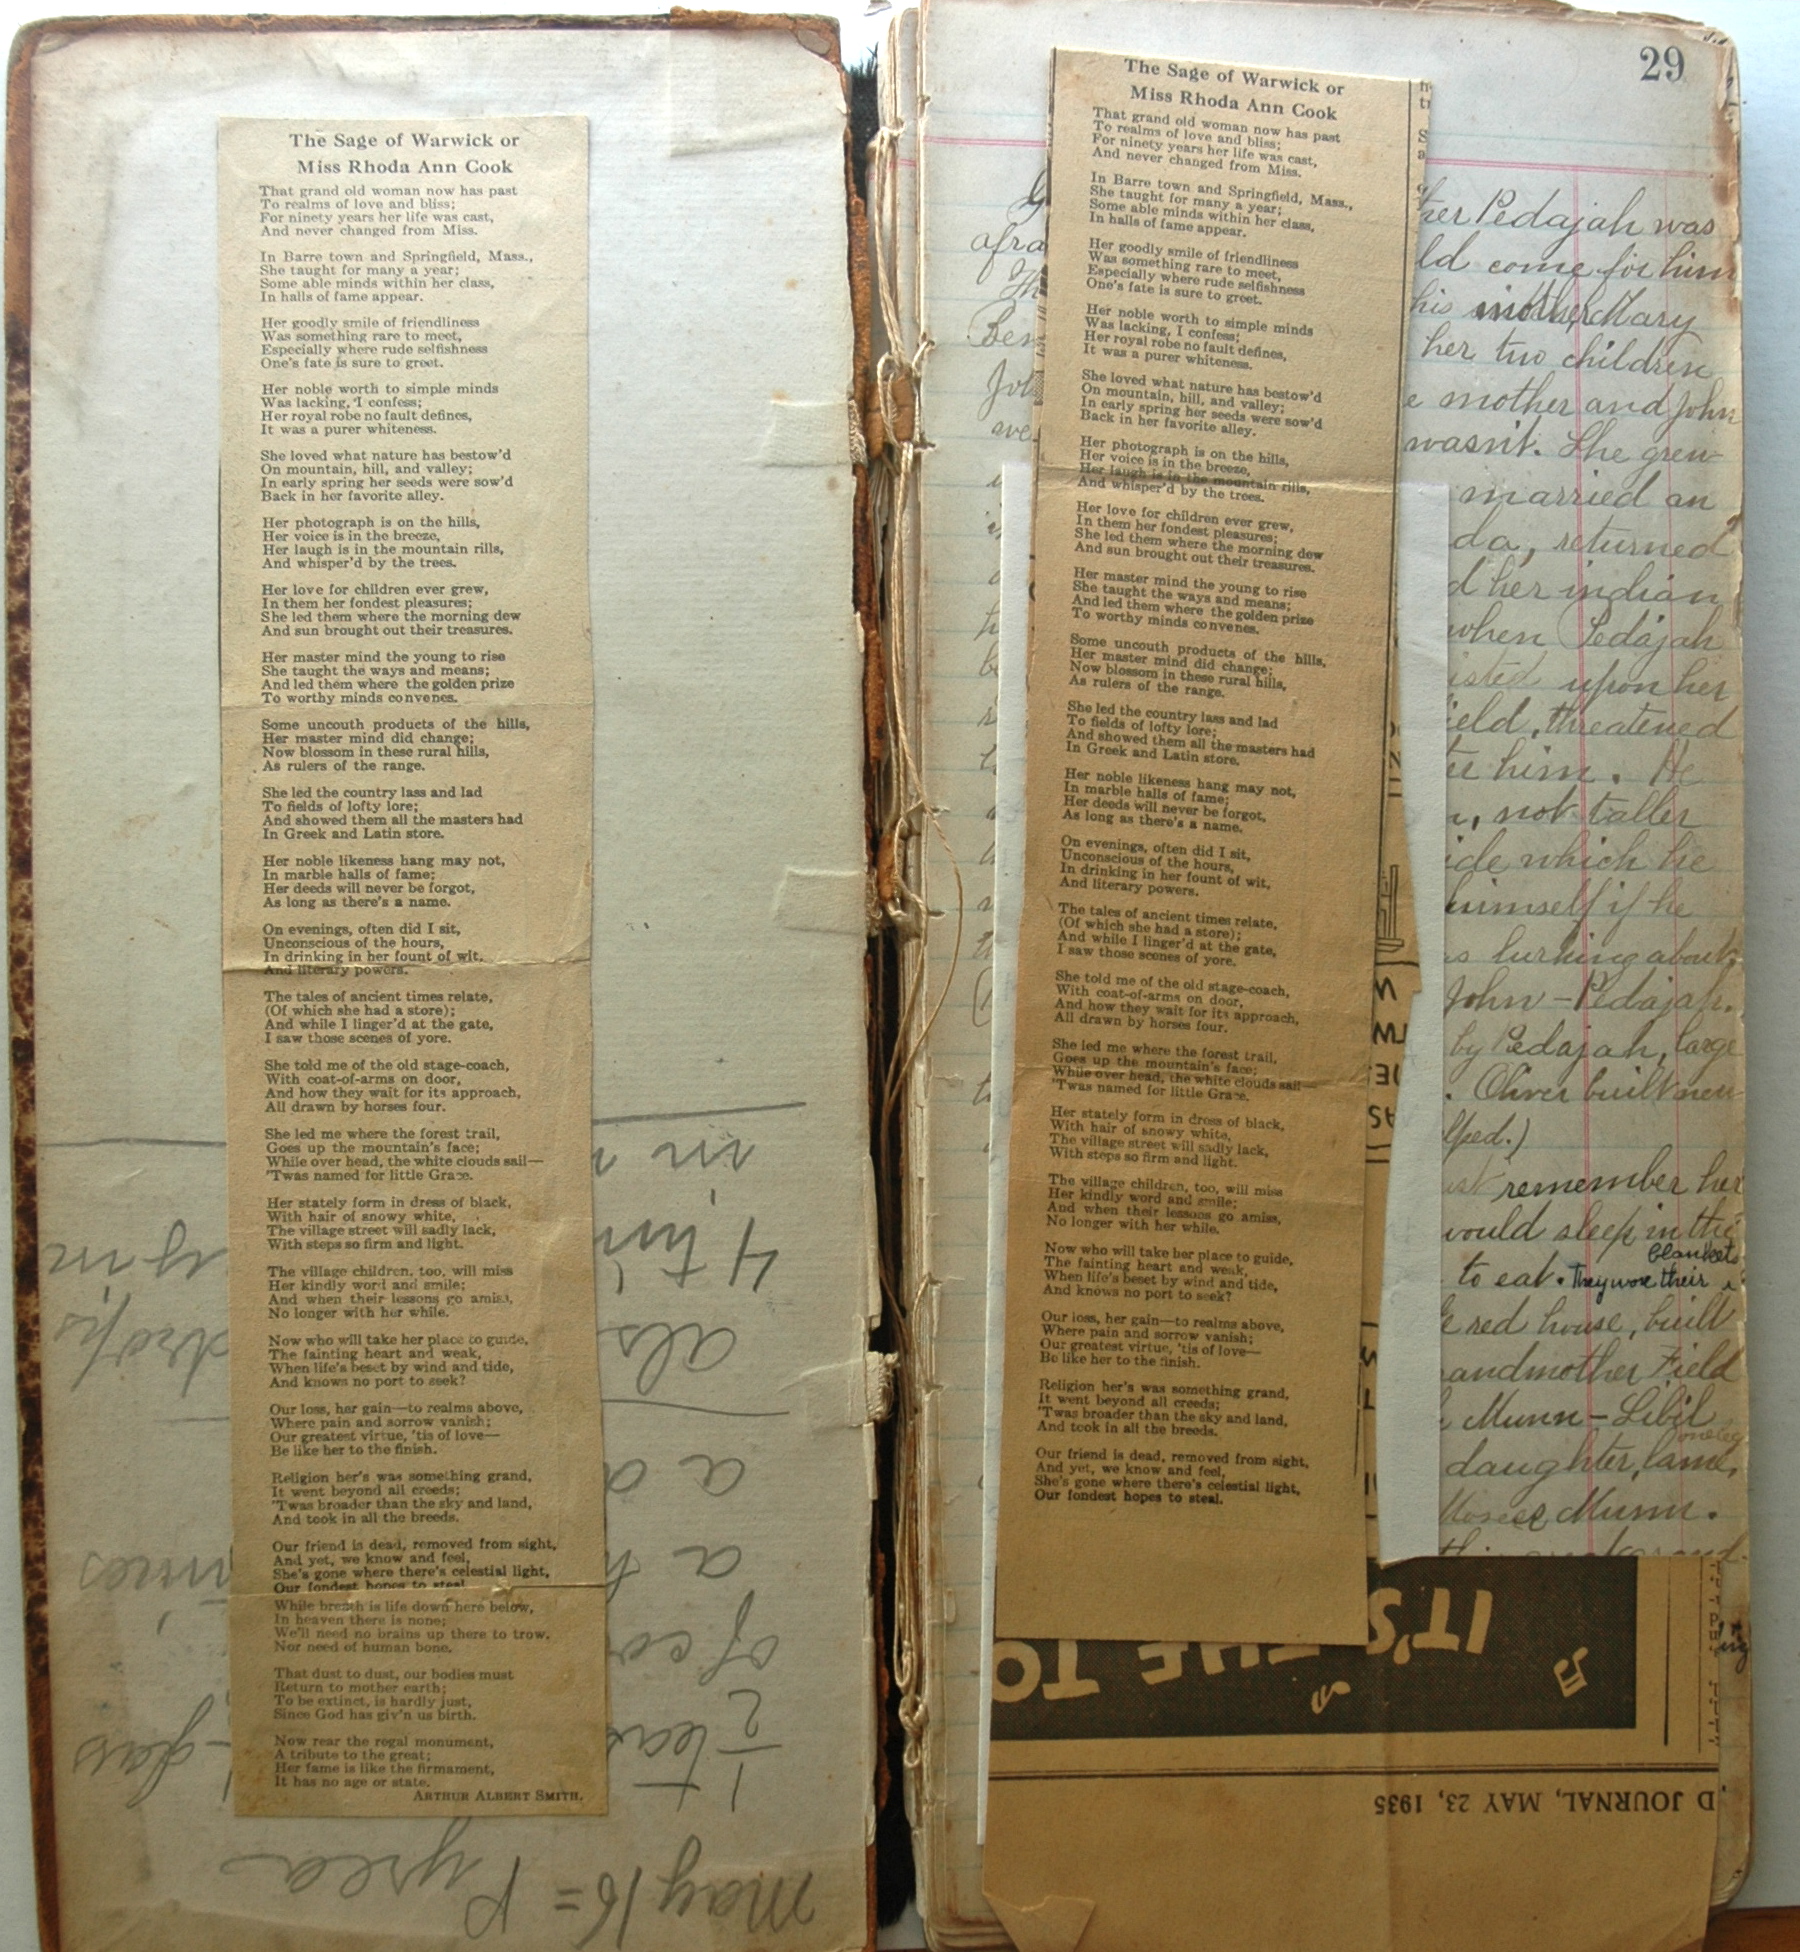 The Sage of Warwick or
Miss Rhoda Ann Cook
That grand old woman now has past
To realms of love and bliss;
For ninety years her life was cast,
And never changed from Miss.
In Barre town and Springfield, Mass.,
She taught for many a year;
Some able minds within her class,
In halls of fame appear.
Her goodly smile of friendliness
Was something rare to meet,
Especially where rude selfishness
One's fate is sure to greet.
Her noble worth to simple minds
Was lacking, I confess;
Her royal robe no fault defines,
It was a purer whiteness.
She loved what nature has bestow'd
On mountain, hill, and valley;
In early spring her seeds were sow'd
Back in her favorite alley.
Her photograph is on the hills,
Her voice is in the breeze,
Her laugh is in the mountain rills,
And whisper'd by the trees.
Her love for children ever grew,
In them her fondest pleasures;
She led them where the morning dew
And sun brought out their treasures.
Her master mind the young to rise
She taught the ways and means;
And led them where the golden prize
To worthy minds convenes.
Some uncouth products of the hills,
Her master mind did change;
Now blossom in these rural hills,
As rulers of the range.
She led the country lass and lad
To fields of lofty lore;
And showed them all the masters had
In Greek and Latin store.
Her noble likeness hang may not,
In marble halls of fame;
Her deeds will never be forgot,
As long as there's a name.
On evenings, often did I sit,
Unconscious of the hours,
In drinking in her fount of wit,
And literary powers.
The tales of ancient times relate,
(Of which she had a store);
And while I linger'd at the gate,
I saw those scenes of yore.
She told me of the old stage-coach,
With coat-of-arms on door,
And how they wait for its approach,
All drawn by horses four.
She led me where the forest trail,
Goes up the mountain's face;
While over head, the white clouds sail—
'Twas named for little Grace.
Her stately form in dress of black,
With hair of snowy white,
The village street will sadly lack,
With steps so firm and light.
The village children, too, will miss
Her kindly word and smile;
And when their lessons go amiss,
No longer with her while.
Now who will take her place to guide,
The fainting heart and weak,
When life's beset by wind and tide,
And knows no port to seek?
Our loss, her gain—to realms above,
Where pain and sorrow vanish;
Our greatest virtue, 'tis of love—
Be like her to the finish.
Religion her's was something grand,
It went beyond all creeds;
'Twas broader than the sky and land,
And took in all the breeds.
Our friend is dead, removed from sight,
And yet, we know and feel,
She's gone where there's celestial light,
Our fondest hopes to steal
While breath is life down here below,
In heaven there is none;
We'll need no brains up there to trow,
Nor need of human bone.
That dust to dust, our bodies must
Return to mother earth;
To be extinct, is hardly just,
Since God has giv'n us birth.
Now rear the regal monument,
A tribute to the great;
Her fame is like the firmament,
It has no age or state.
ARTHUR ALBERT SMITH.
May 16 =
29
The Sage of Warwick or
Miss Rhoda Ann Cook
That grand old woman now has past
To realms of love and bliss;
For ninety years her life was cast,
And never changed from Miss.
In Barre town and Springfield, Mass.,
She taught for many a year;
Some able minds within her class,
In halls of fame appear.
Her goodly smile of friendliness
Was something rare to meet,
Especially where rude selfishness
One's fate is sure to greet.
Her noble worth to simple minds
Was lacking, I confess;
Her royal robe no fault defines,
It was a purer whiteness.
She loved what nature has bestow'd
On mountain, hill, and valley;
In early spring her seeds were sow'd
Back in her favorite alley.
Her photograph is on the hills,
Her voice is in the breeze,
Her laugh is in the mountain rills,
And whisper'd by the trees.
Her love for children ever grew,
In them her fondest pleasures;
She led them where the morning dew
And sun brought out their treasures.
Her master mind the young to rise
She taught the ways and means;
And led them where the golden prize
To worthy minds convenes.
Some uncouth products of the hills,
Her master mind did change;
Now blossom in these rural hills,
As rulers of the range.
She led the country lass and lad
To fields of lofty lore;
And showed them all the masters had
In Greek and Latin store.
Her noble likeness hang may not,
In marble halls of fame;
Her deeds will never be forgot,
As long as there's a name.
On evenings, often did I sit,
Unconscious of the hours,
In drinking in her fount of wit,
And literary powers.
The tales of ancient times relate,
(Of which she had a store);
And while I linger'd at the gate,
I saw those scenes of yore.
She told me of the old stage-coach,
With coat-of-arms on door,
And how they wait for its approach,
All drawn by horses four.
She led me where the forest trail,
Goes up the mountain's face;
While over head, the white clouds sail—
'Twas named for little Grace.
Her stately form in dress of black,
With hair of snowy white,
The village street will sadly lack,
With steps so firm and light.
The village children, too, will miss
Her kindly word and smile;
And when their lessons go amiss,
No longer with her while.
Now who will take her place to guide,
The fainting heart and weak,
When life's beset by wind and tide,
And knows no port to seek?
Our loss, her gain—to realms above,
Where pain and sorrow vanish;
Our greatest virtue, 'tis of love—
Be like her to the finish.
Religion her's was something grand,
It went beyond all creeds;
'Twas broader than the sky and land,
And took in all the breeds.
Our friend is dead, removed from sight,
And yet, we know and feel,
She's gone where there's celestial light,
Our fondest hopes to steal.
Pedajah was
come for him
his mother Mary
her two children
mother and John
wasn't. She grew
married an
returned
her indian
when Pedajah
upon her
threatened
him. He
not taller
which he
himself if he
lurking about
John - Pedajah.
by Pedajah, large
Oliver built new
remember her
would sleep in the
blankets
to eat. They wore their
red house, built
Grandmother Field
Munn - Libil
one leg
daughter, lame,
Munn.
IT'S THE TO
D JOURNAL, MAY 23, 1935